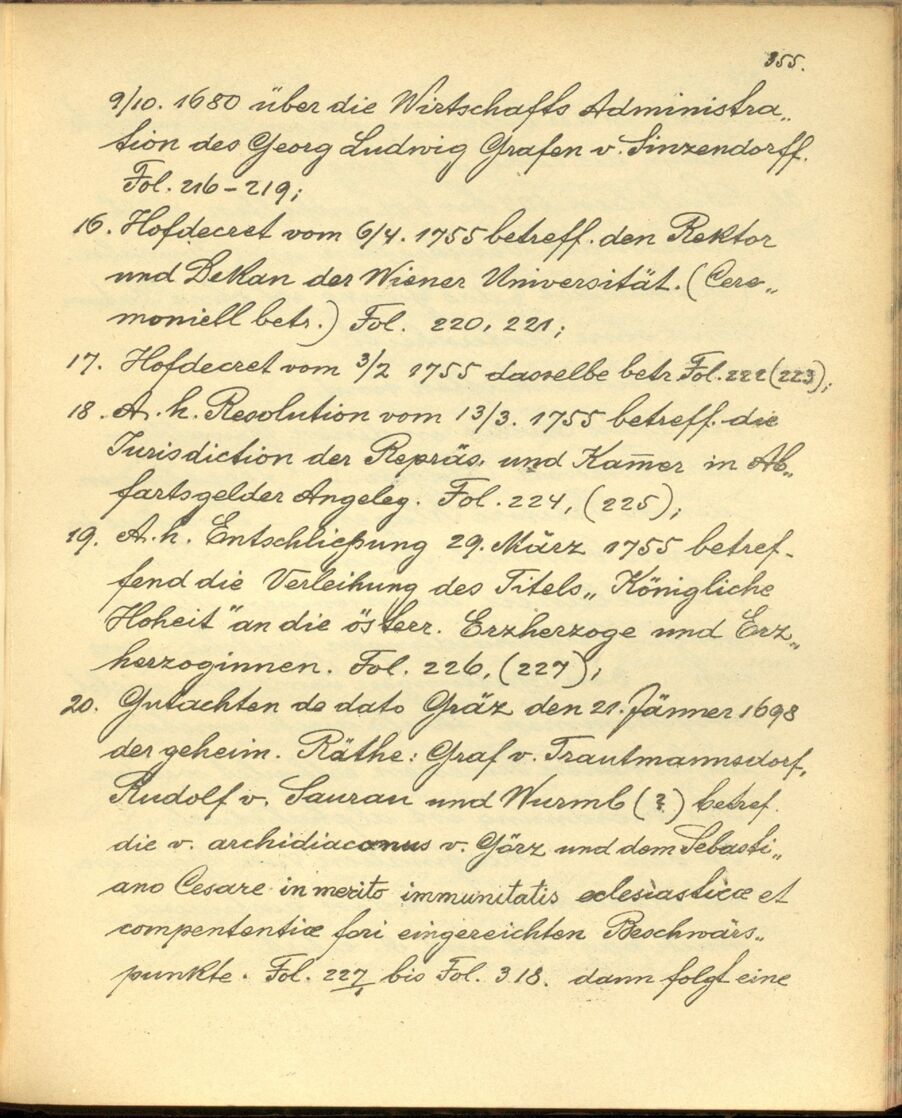 355.
9/10. 1680 über die Wirtschafts Administra„
tion des Georg Ludwig Grafen v. Sinzendorff.
Fol. 216–219;
16. Hofdecret vom 6/4. 1755 betreff. den Rektor
und Dekan der Wiener Universität. (Cere„
moniell betr.) Fol. 220, 221;
17. Hofdecret vom 3/2 1755 dasselbe betr. Fol. 222 (223);
18. A. h. Resolution vom 13/3. 1755 betreff. die
Jurisdiction der Repräs. und Kam̄er in Ab„
fartsgelder Angeleg. Fol. 224, (225);
19. A. h. Entschließung 29. März 1755 betref-
fend die Verleihung des Titels „Königliche
Hoheit" an die österr. Erzherzoge und Erz„
herzoginnen. Fol. 226, (227);
20. Gutachten de dato Gräz den 21. Jänner 1698
der geheim. Räthe: Graf v. Trautmannsdorf,
Rudolf v. Saurau und Wurmb (?) betref.
die v. archidiaconus v. Görz und dem Sebasti„
ano Cesare in merito immunitatis eclesiasticæ et
compententiæ fori eingereichten Beschwärs„
punkte. Fol. 227/1 bis Fol. 318. dann folgt eine